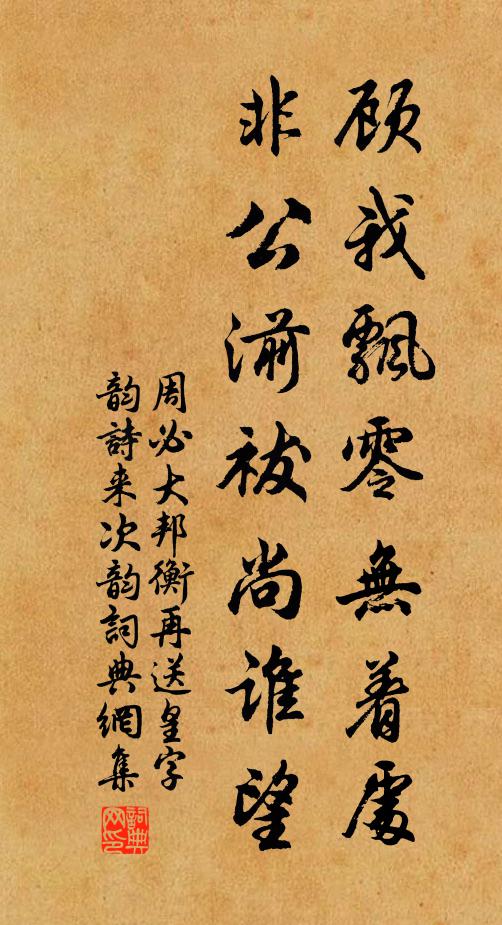 顾我飄零無着處
非公湔祓尚誰望
周必大邦衡再送皇字
韵詩来次韵詞典網集
詞典网印